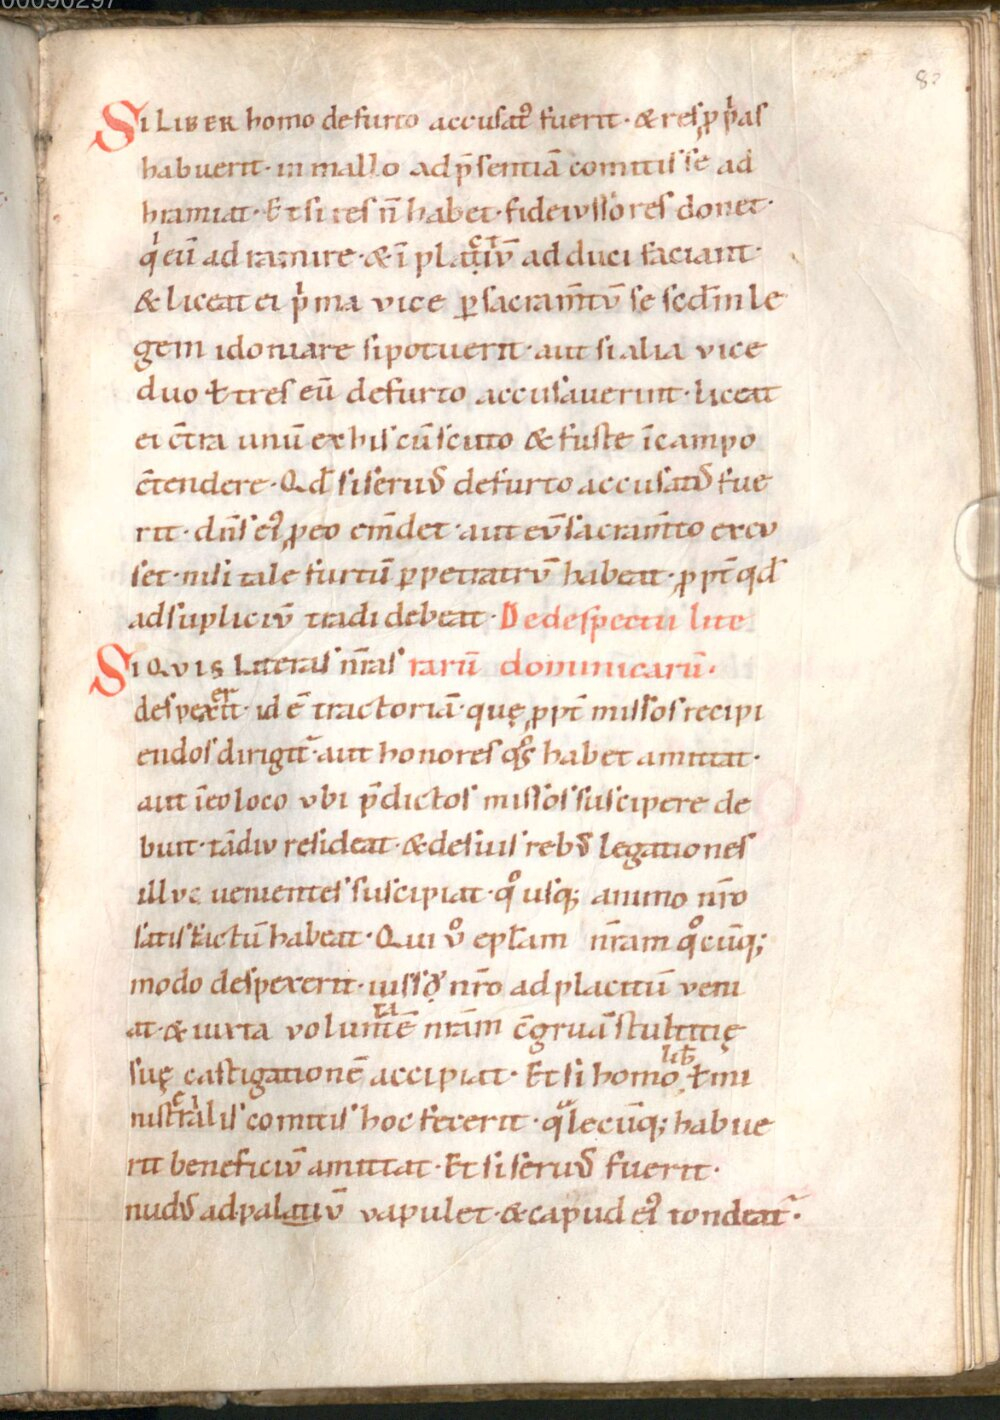 00090297
82
SI LIBER homo defurto accusat᷒ fuerit · & res ꝓpͥas
habuerit · in mallo ad p̄sentiā comitis se ad
hramiat · Et si res n̄ habet · fideiussores donet ·
qͥ eū adramire · & ī placitiū adduci faciant ·
& liceat ei pͥma vice ꝑ sacram̄tū se scd̄m le
gem idoniare si potuerit · aut si alia vice
duo ł tres eū defurto accusauerint · liceat
ei c̄tra unū ex his cū scuto & fuste ī campo
c̄tendere · Qd̄ si seruꝰ defurto accusatꝰ fue
rit · dn̄s eiꝰ ꝓ eo em̄det · aut eū sacram̄to excu
set · nisi tale furtū ꝑpetratū habeat · ꝓpt̄ qd̄
ad supliciū tradi debeat · De despectu lite
SI QVIS Literas nr̄as rarū dominicarū ·
despexerit · id ē tractoriā · quę ꝓpt̄ missos recipi
endos dirigit᷑ · aut honores qͦs habet amittat ·
aut ī eo loco ubi p̄dictos missos suscipere de
buit · tādiu resideat · & de suis rebꝰ legationes
illuc uenientes suscipiat · qͦ usq; animo nr̄o
satisfactū habeat · Qui vͦ epłam nr̄am qͦcūq;
modo despexerit · iussꝰ nr̄o ad placitū veni
at · & iuxta voluntatē nr̄ām c̄gruā stultitię
suę castigationē accipiat · Et si homo lib̄ ł mi
nisterialis comitis hoc fecerit · qͣlecūq; habue
rit beneficiū amittat · Et si seruꝰ fuerit ·
nudꝰ ad palatiū vapulet · & capud eiꝰ tondeat᷑ ·